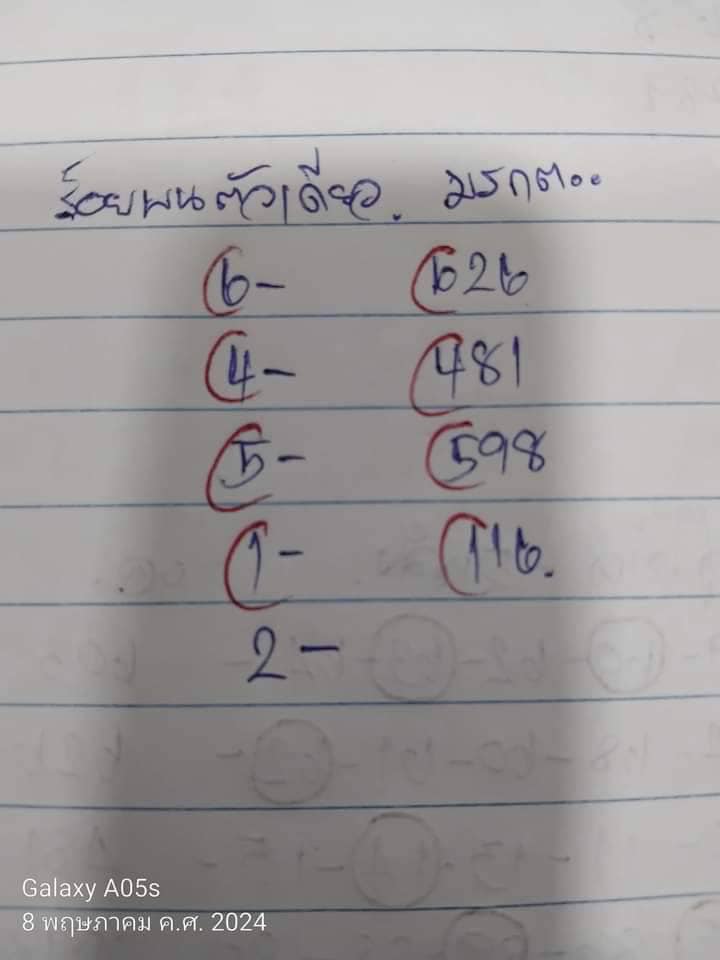 ร้อยพนตัวเดียว. มรกต..
6- 626
4- 481
5- 598
1- 116.
2-
Galaxy A05s
8 พฤษภาคม ค.ศ. 2024